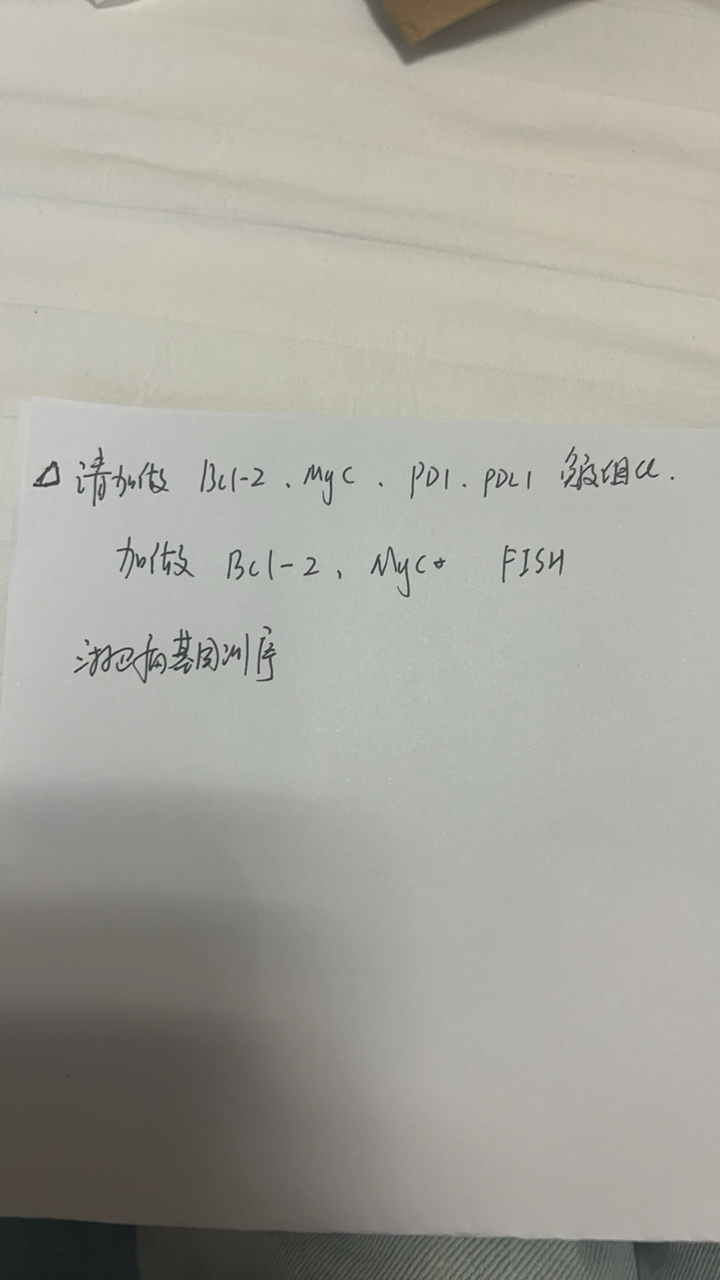 △ 请加做 Bcl-2、Myc、PD1、PDL1 免疫组化.
加做 Bcl-2、Myc FISH
淋巴瘤基因测序